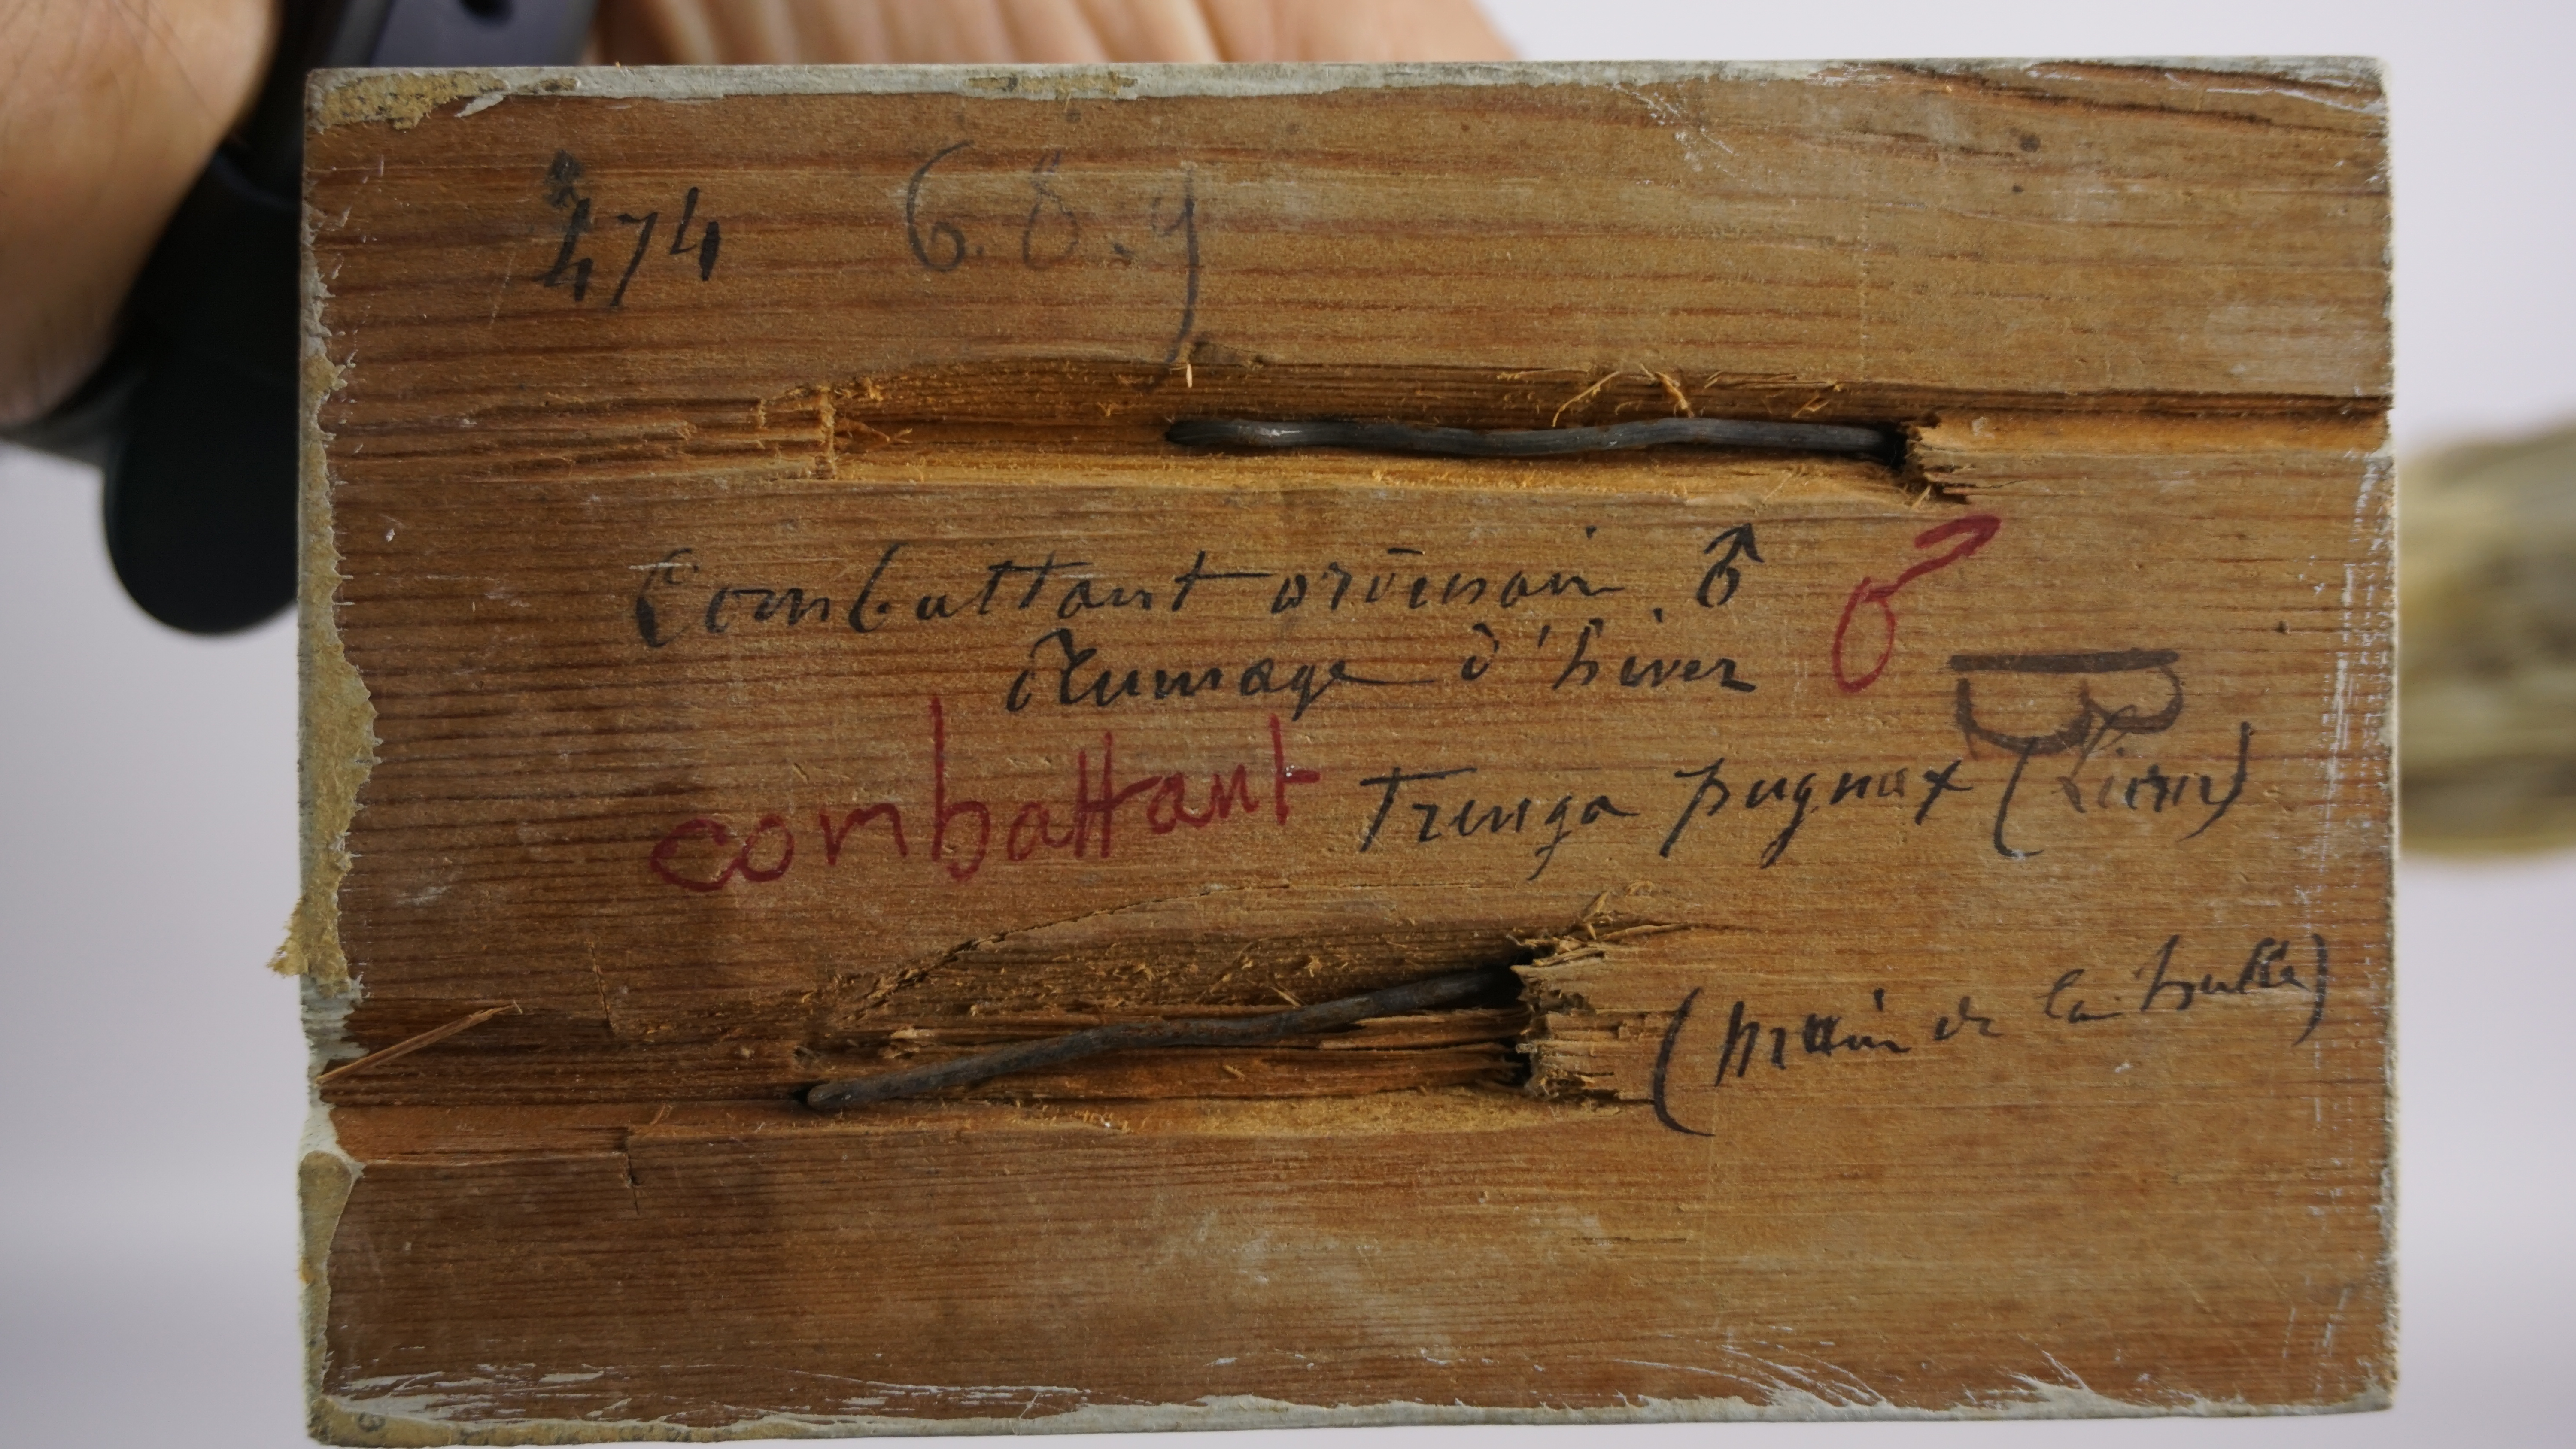 474 6.8.9
Combattant ordinair ♂ ♂
Plumage d'hiver
B
combattant Tringa pugnax (Linn)
( de la hutte)